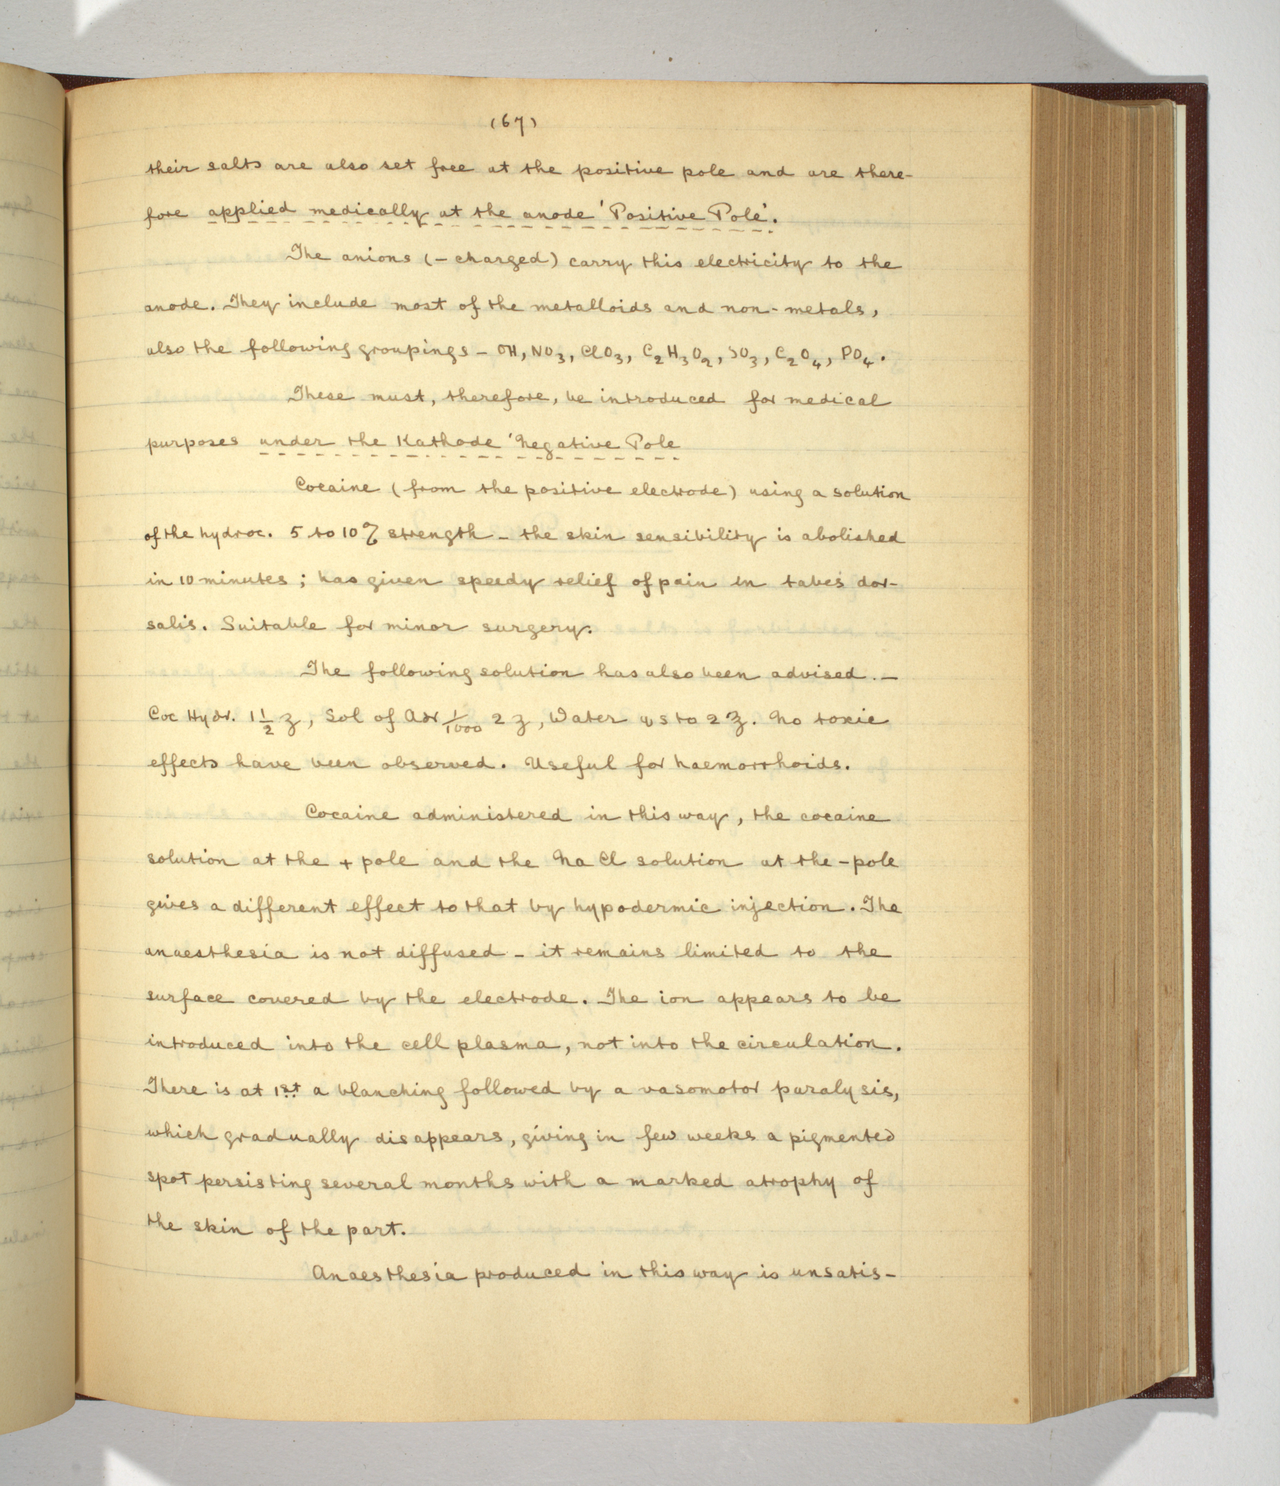 (67)
their salts are also set free at the positive pole and are there-
fore applied medically at the anode 'Positive Pole'.
The anions (- charged) carry this electricity to the
anode. They include most of the metalloids and non-metals,
also the following groupings - OH, NO3, ClO3, C2H3O2, SO3, C2O4, PO4.
These must, therefore, be introduced for medical
purposes under the Kathode 'Negative Pole
Cocaine (from the positive electrode) using a solution
of the hydroc. 5 to 10% strength - the skin sensibility is abolished
in 10 minutes; has given speedy relief of pain in tabes dor-
salis. Suitable for minor surgery.
The following solution has also been advised. -
Coc Hydr. 1 1/2 ʒ, Sol of Adr 1/1000 2 ʒ, Water qs to 2 ℥. No toxic
effects have been observed. Useful for haemorrhoids.
Cocaine administered in this way, the cocaine
solution at the + pole and the NaCl solution at the - pole
gives a different effect to that by hypodermic injection. The
anaesthesia is not diffused - it remains limited to the
surface covered by the electrode. The ion appears to be
introduced into the cell plasma, not into the circulation.
There is at 1st a blanching followed by a vasomotor paralysis,
which gradually disappears, giving in few weeks a pigmented
spot persisting several months with a marked atrophy of
the skin of the part.
Anaesthesia produced in this way is unsatis-